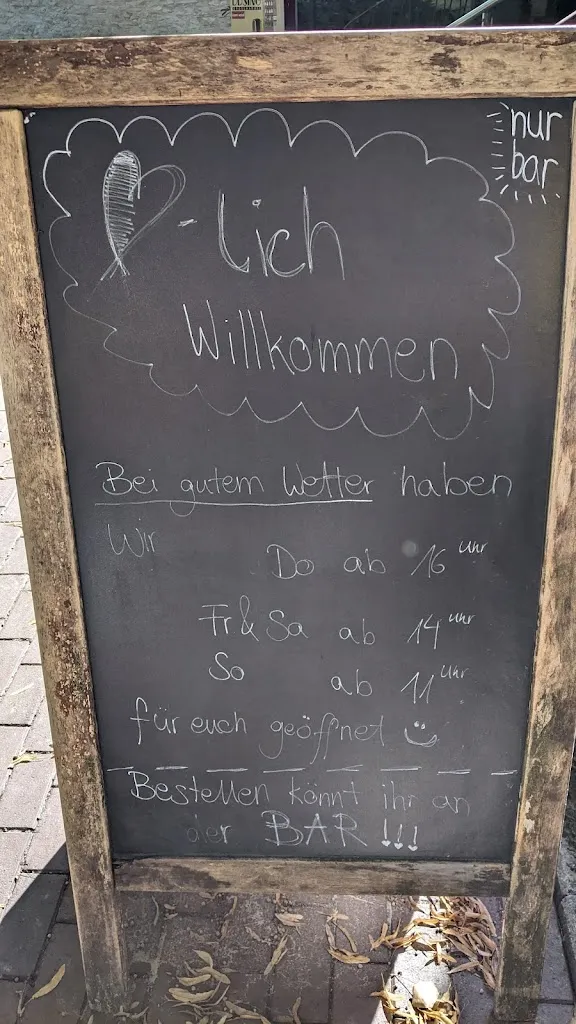 nur
bar
-lich
Willkommen
Bei gutem Wetter haben
Wir
Do ab 16 Uhr
Fr & Sa ab 14 Uhr
So ab 11 Uhr
für euch geöffnet
Bestellen könnt ihr an
der BAR!!!